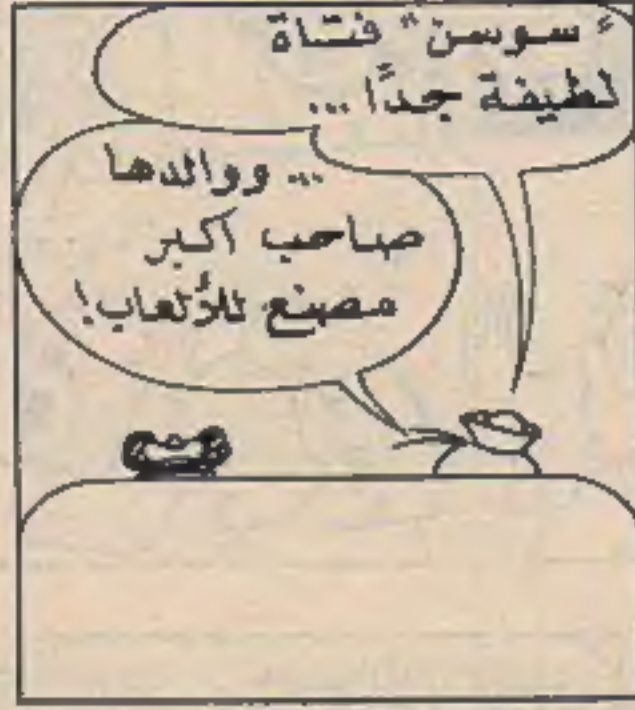 "سوسن" فتاة
لطيفة جدًا ...
... ووالدها
صاحب أكبر
مصنع للألعاب!